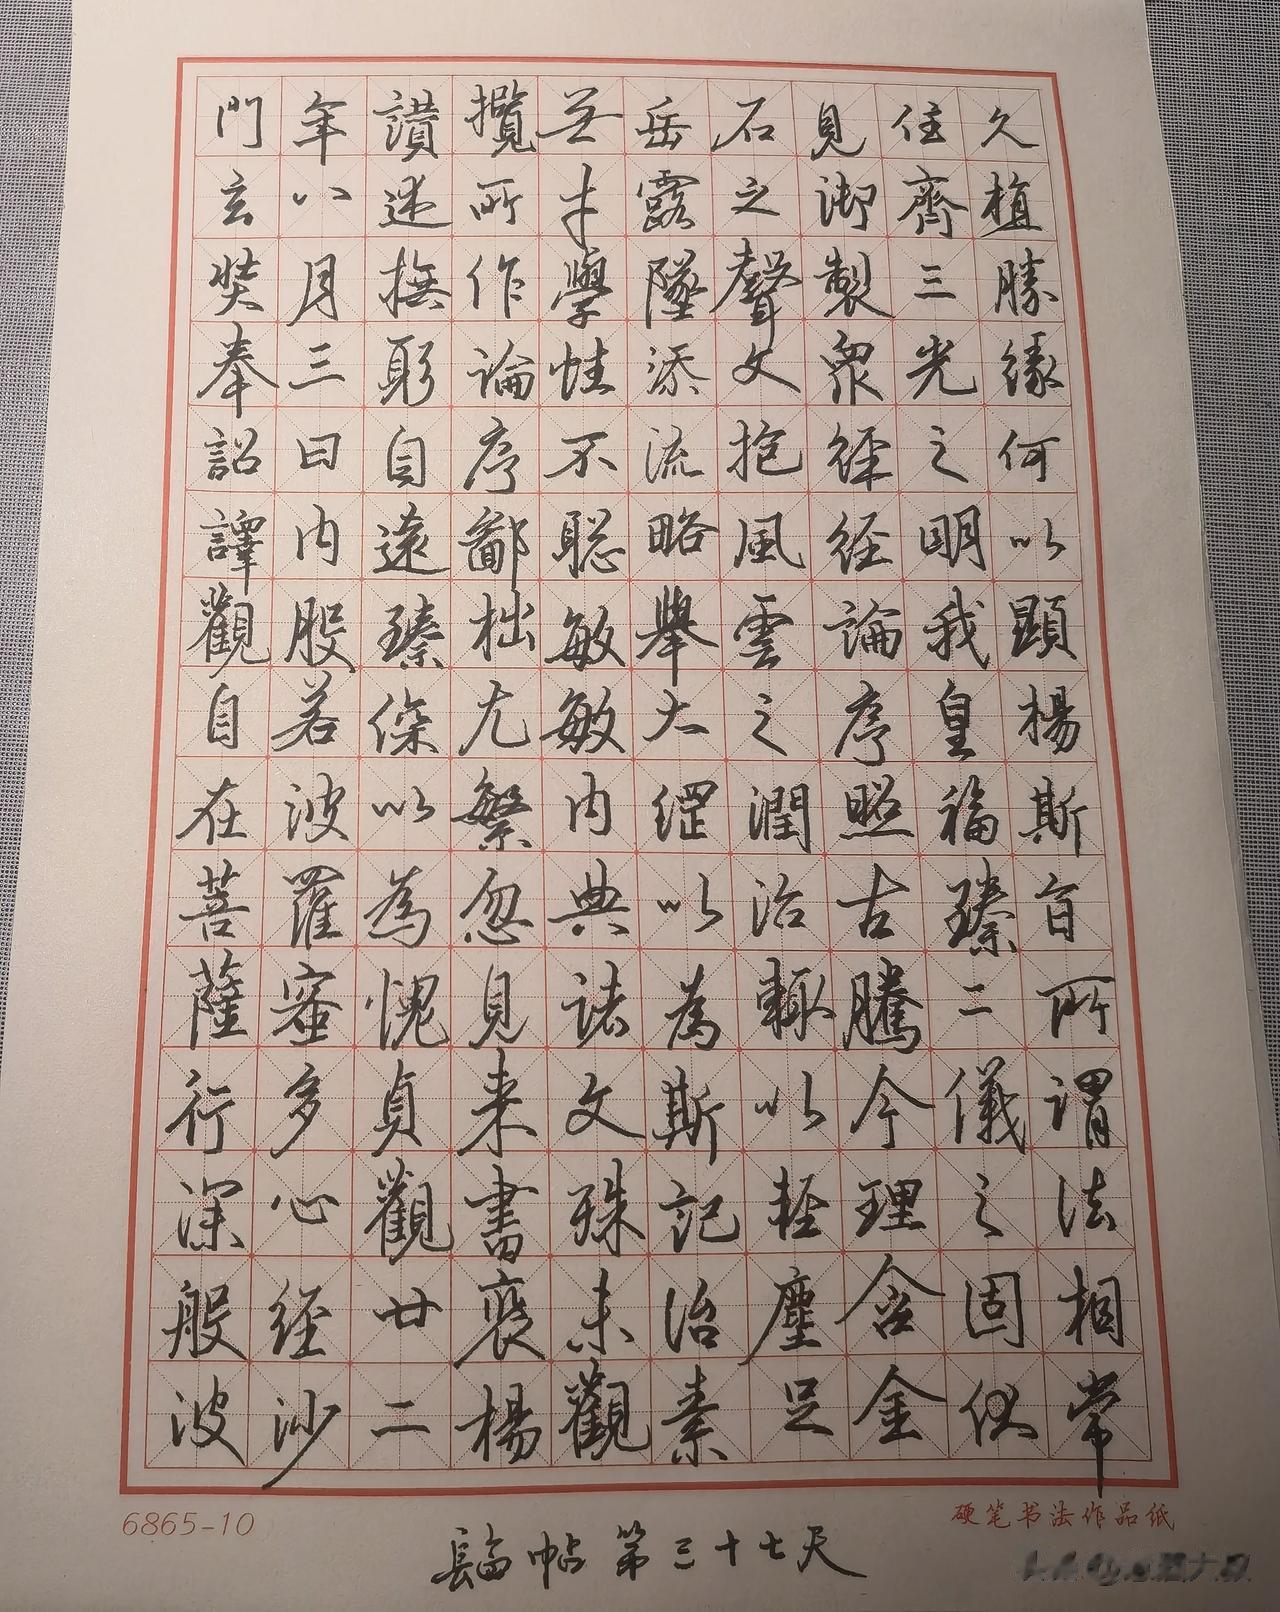 久植勝緣何以顯揚斯旨所謂法相常
住齊三光之明我皇福臻二儀之固伏
見御製眾經經論序照古騰今理含金
石之聲文抱風雲之潤治輒以輕塵足
岳露墜添流略舉大綱以為斯記治素
無才學性不聰敏敏內典諸文殊未觀
攬所作論序鄙拙尤繁忽見来書褒揚
讚述撫躬自遠臻深以為愧貞觀廿二
年八月三日內般若波羅蜜多心經沙
門玄奘奉詔譯觀自在菩薩行深般波
6865-10
硬笔书法作品纸
臨帖第三十七天